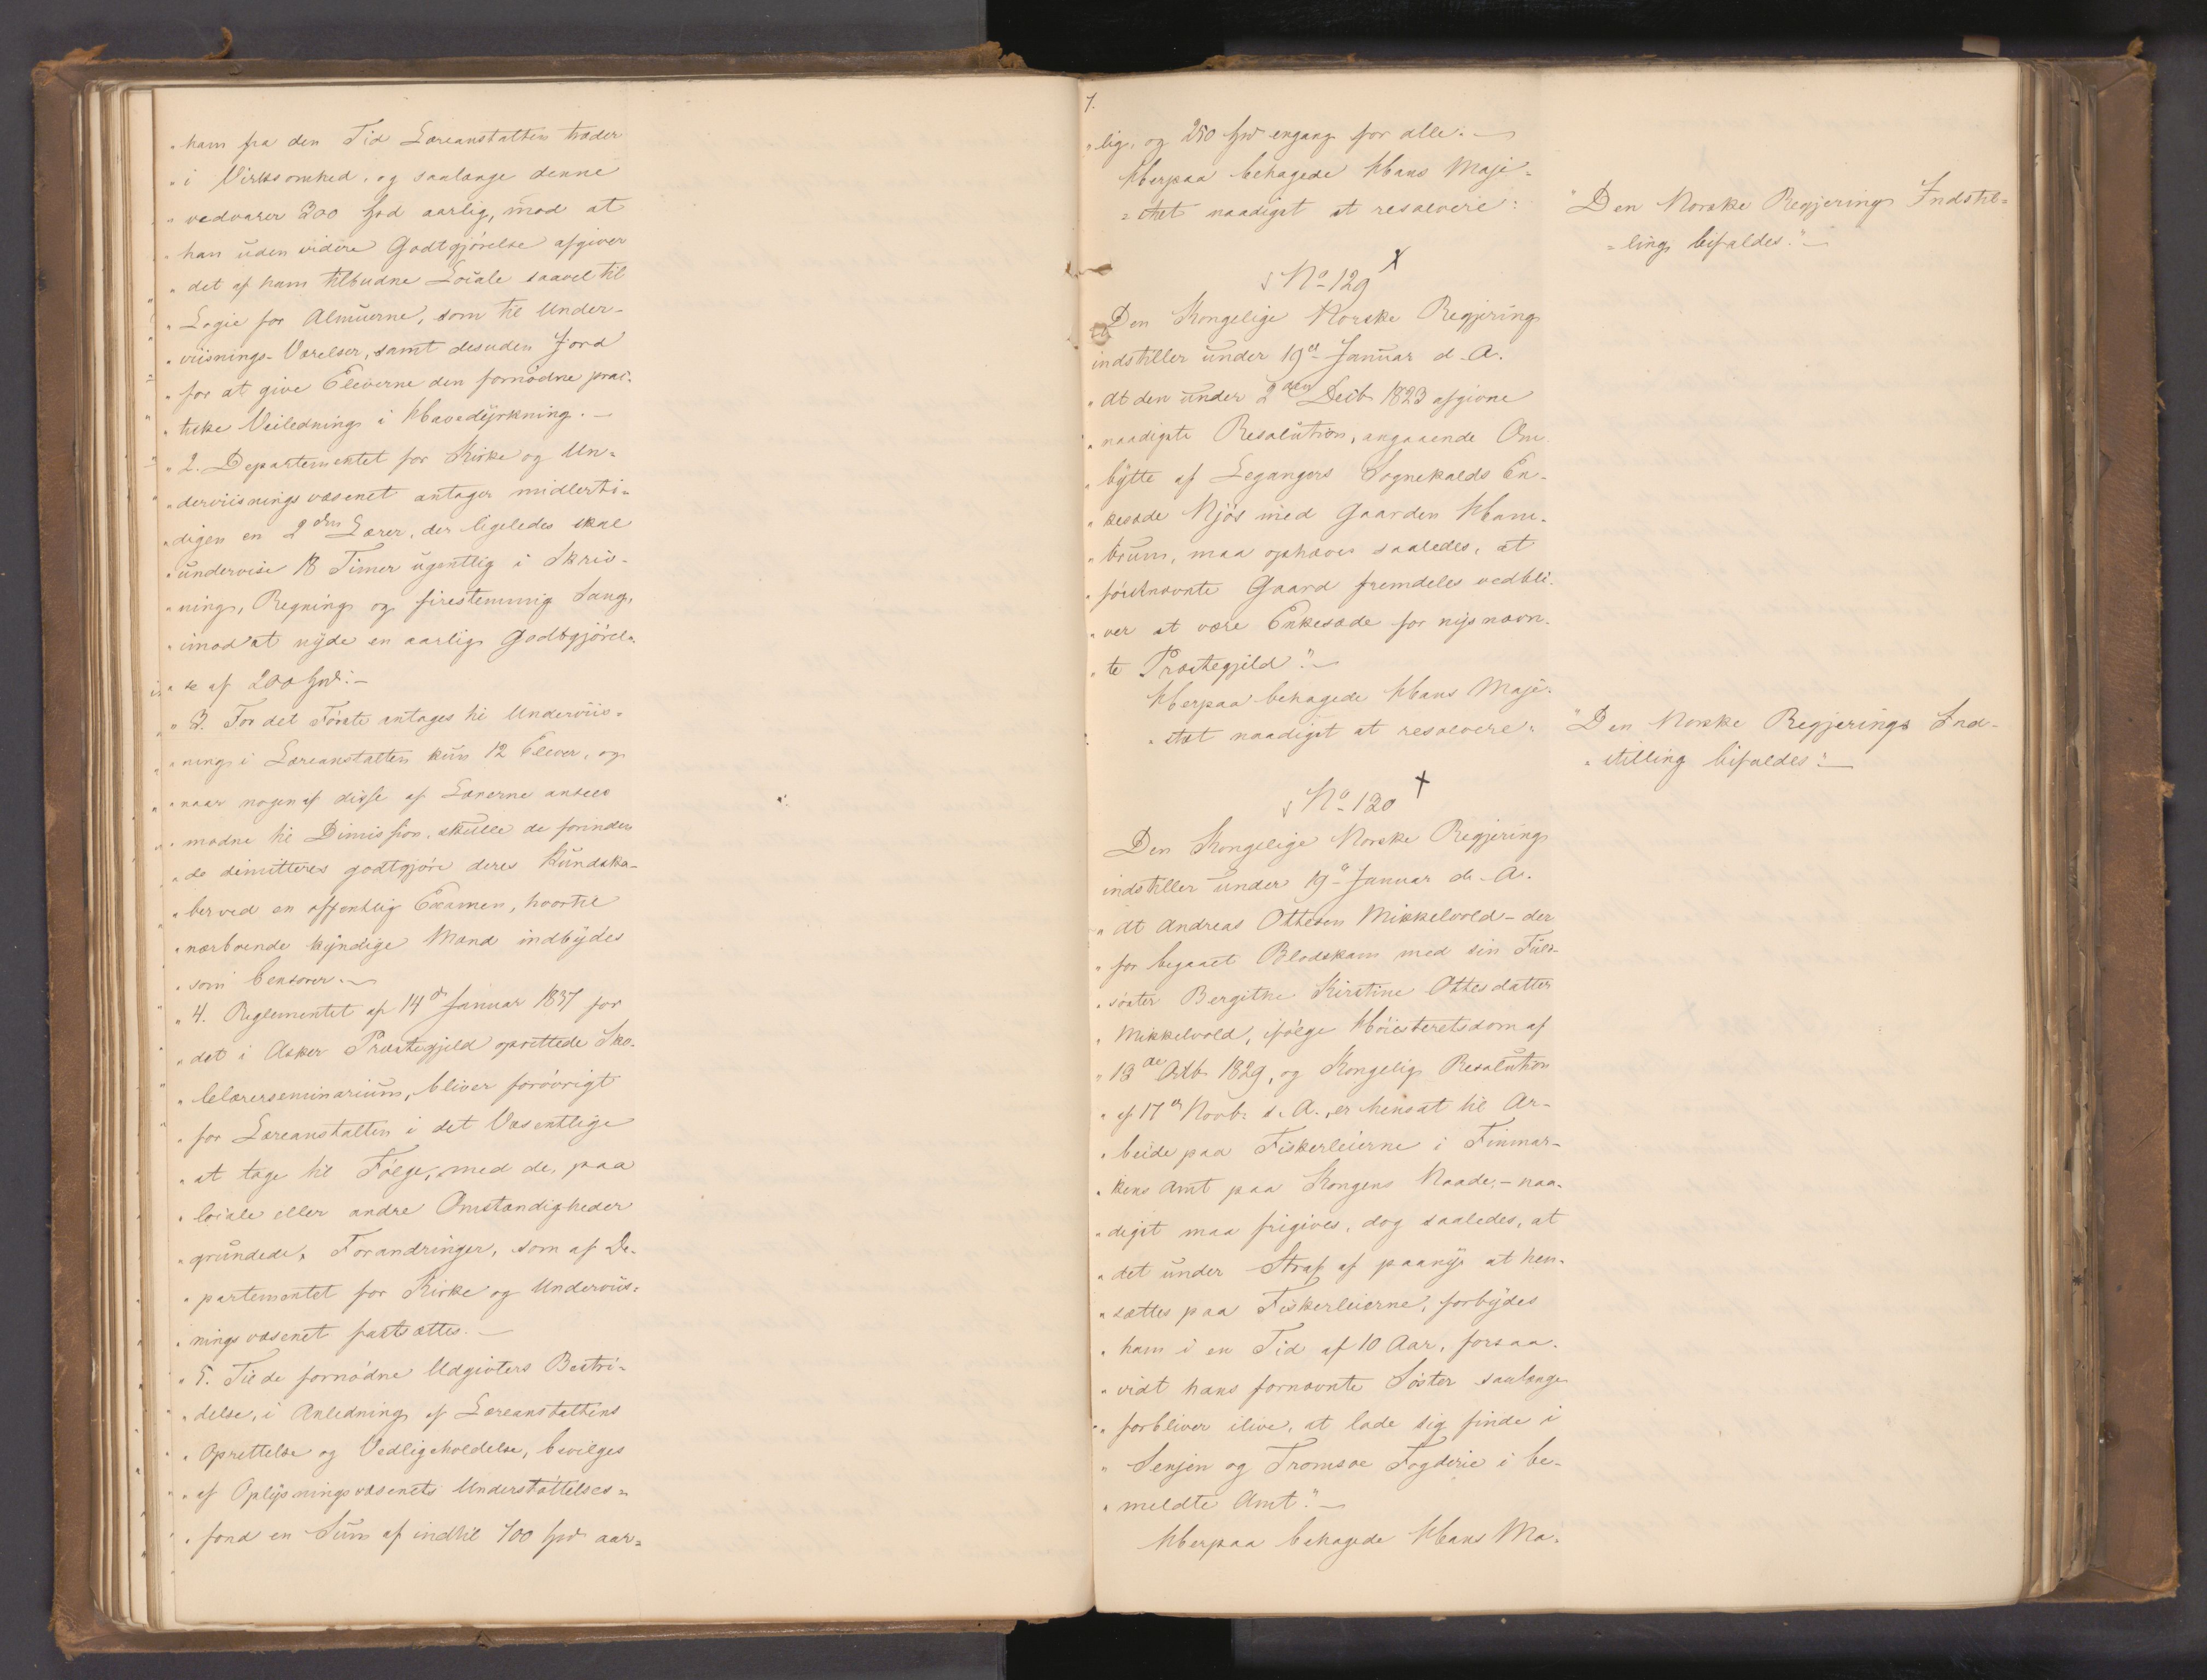 "ham fra den Tid Læreanstalten træder
"i Virksomhed, og saalænge denne
"vedvarer 300 Spd aarlig, mod at
"han uden videre Godtgjörelse afgiver
"det af ham tilbudne Locale saavel til
"Logie for Almuerne, som til Under-
"viisnings-Værelser, samt desuden Jord
"for at give Eleverne den fornödne prac-
"tiske Veiledning i Havedyrkning.-
"2. Departementet for Kirke og Un=
"derviisningsvæsenet antager midlerti=
"digen en 2den Lærer, der ligeledes skal
"undervise 18 Timer ugentlig i Skriv-
"ning, Regning og firestemmig Sang,
"imod at nyde en aarlig Godtgjörel=
"se af 200 Spd:-
"3. For det Förste antages til Underviis=
"ning i Læreanstalten kun 12 Elever, og
"naar nogen af disse af Lærerne ansees
"modne til Dimission, skulle de forinden
"de dimitteres godtgjöre deres Kundska-
"ber ved en offentlig Examen, hvortil
"nærboende kyndige Mænd indbydes
"som Censorer.-
"4. Reglementet af 14de Januar 1837 for
"det i Asker Præstegjeld oprettede Sko-
"lelærerseminarium, bliver forövrigt
"for Læreanstalten i det Væsentlige
"at tage til Fölge, med de, paa
"locale eller andre Omstændigheder
"grundede, Forandringer, som af De-
"partementet for Kirke og Underviis=
"ningsvæsenet fastsættes.-
"5. Til de fornödne Udgivters Bestri=
"delse, i Anledning af Læreanstaltens
"Oprettelse og Vedligeholdelse, bevilges
"af Oplysningsvæsenets Understöttelses=
"fond en Sum af indtil 700 Spd aar=
"lig, og 250 Spd engang for alle.-
Herpaa behagede Hans Maje=
=stæt naadigst at resolvere:
"Den Norske Regjerings Indstil=
=ling bifaldes."-
No 129 X
Den Kongelige Norske Regjering
indstiller under 19de Januar d. A.
"At den under 2den Decb. 1823 afgivne
"naadigste Resolution, angaaende Om
"bytte af Leganger Sognekalds En-
"kesæde Njös med Gaarden Ham-
"brum, maa ophæves saaledes, at
"förstnævnte Gaard fremdeles vedbli-
"ver at være Enkesæde for nysnævn-
"te Præstegjeld."-
Herpaa behagede Hans Maje-
"stæt naadigst at resolvere:
"Den Norske Regjerings Ind-
"stilling bifaldes."-
No 130 +
Den Kongelige Norske Regjering
indstiller under 19de Januar d. A.
"At Andreas Ottesen Mikkelvold - der
"for begaaet Blodskam med sin Fuld-
"söster Bergithe Kirstine Ottesdatter
"Mikkelvold, ifölge Höiesteretsdom af
"13de Octb. 1829, og Kongelig Resolution
"af 17de Novb. s. A., er hensat til Ar-
"beide paa Fiskerleierne i Finmar-
"kens Amt paa Kongens Naade, - naa-
"digst maa frigives, dog saaledes, at
"det under Straf af paany at hen-
"sættes paa Fiskerleierne, forbydes
"ham i en Tid af 10 Aar, forsaa-
"vidt hans fornævnte Söster saalænge
"forbliver ilive, at lade sig finde i
"Senjen og Tromsöe Fogderie i be-
"meldte Amt."-
Herpaa behagede Hans Ma-